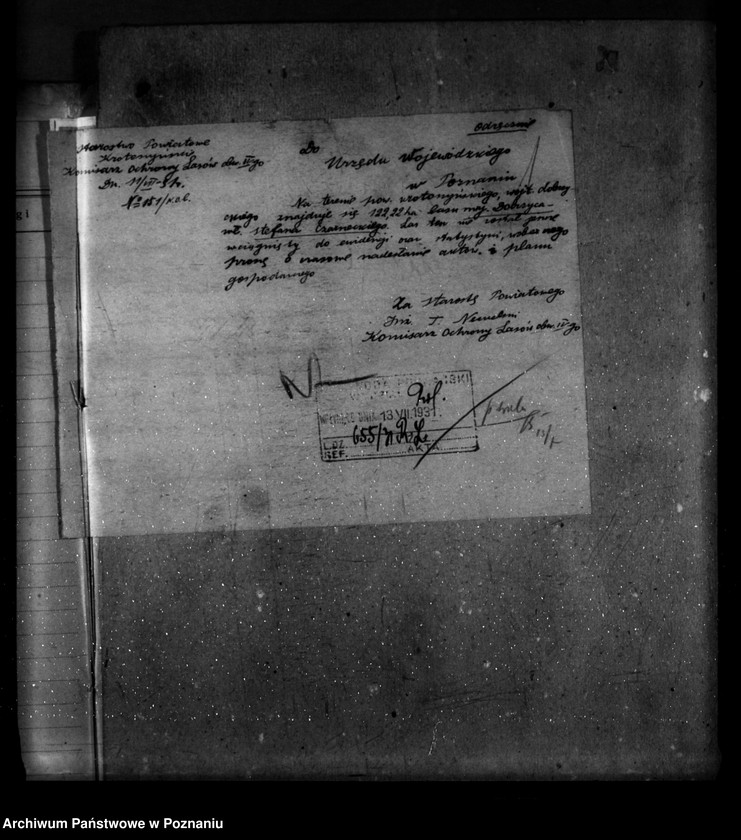 odręcznie
Starostwo Powiatowe
Krotoszyński
Komisarz Ochrony Lasów obw. IV go
Dn. 11/VII-31r.
№ 151/
Do
Urzędu Wojewódzkiego
w Poznaniu
Na terenie pow. krotoszyńskiego, wójt. dobrzy-
ckiego znajduje się 122,22 ha lasu maj. Dobrzyca-
wł. Stefana Czarneckiego. Las ten nie został
wciągnięty do ewidencji oraz statystyki, wobec czego
proszę o nadesłanie aktów i planu
gospodarczego
Za Starostę Powiatowego
Inż. T.
Komisarz Ochrony Lasów obw. IV go
DNIA 13 VII. 1931
L. DZ. 655/31
REF. AKTA
Archiwum Państwowe w Poznaniu